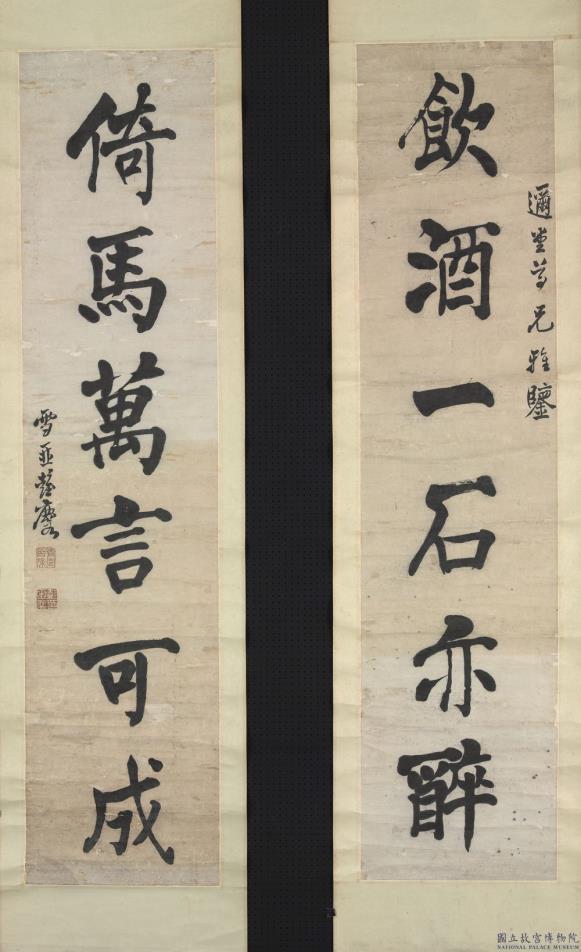 邇堂尊兄雅鑒
飲酒一石亦醉
倚馬萬言可成
雪彭麐
國立故宮博物院
NATIONAL PALACE MUSEUM